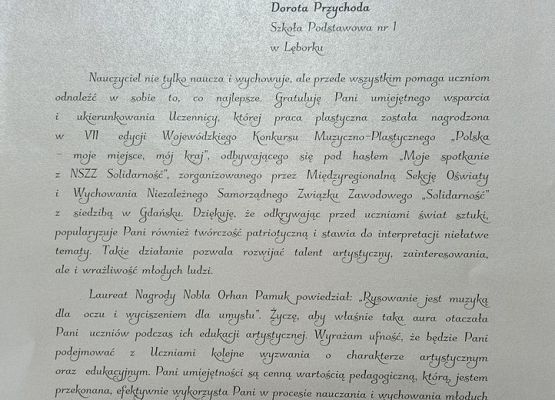 Dorota Przychoda
Szkoła Podstawowa nr 1
w Lęborku
Nauczyciel nie tylko naucza i wychowuje, ale przede wszystkim pomaga uczniom
odnaleźć w sobie to, co najlepsze. Gratuluję Pani umiejętnego wsparcia
i ukierunkowania Uczennicy, której praca plastyczna została nagrodzona
w VII edycji Wojewódzkiego Konkursu Muzyczno-Plastycznego „Polska
– moje miejsce, mój kraj”, odbywającego się pod hasłem „Moje spotkanie
z NSZZ Solidarność”, zorganizowanego przez Międzyregionalną Sekcję Oświaty
i Wychowania Niezależnego Samorządnego Związku Zawodowego „Solidarność”
z siedzibą w Gdańsku. Dziękuję, że odkrywając przed uczniami świat sztuki,
popularyzuje Pani również twórczość patriotyczną i stawia do interpretacji niełatwe
tematy. Takie działanie pozwala rozwijać talent artystyczny, zainteresowania,
ale i wrażliwość młodych ludzi.
Laureat Nagrody Nobla Orhan Pamuk powiedział: „Rysowanie jest muzyką
dla oczu i wyciszeniem dla umysłu”. Życzę, aby właśnie taka aura otaczała
Pani uczniów podczas ich edukacji artystycznej. Wyrażam ufność, że będzie Pani
podejmować z Uczniami kolejne wyzwania o charakterze artystycznym
oraz edukacyjnym. Pani umiejętności są cenną wartością pedagogiczną, którą, jestem
przekonana, efektywnie wykorzysta Pani w procesie nauczania i wychowania młodych